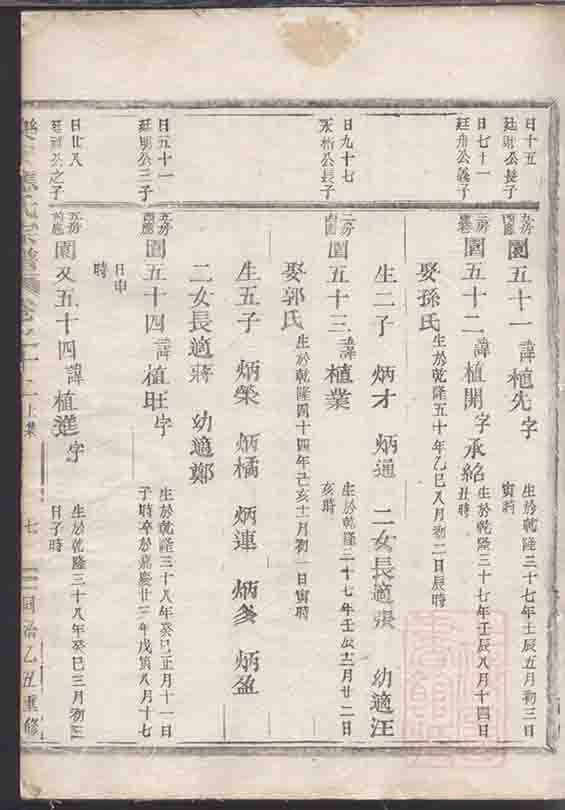 日十五
廷財公長子
五房
圍五十一 諱植先 字
生於乾隆三十七年壬辰五月初三日
寅時
日七十一
廷舟公義子
二房
圍五十二 諱植開 字承紹
生於乾隆三十七年壬辰八月十四日
丑時
娶孫氏 生於乾隆五十年乙巳八月初二日辰時
生二子 炳才 炳通 二女長適張 幼適汪
日九十七
公長子
二房
圍五十三 諱植業
生於乾隆三十七年壬辰十二月廿二日
亥時
娶郭氏 生於乾隆四十四年己亥十二月初一日寅時
生五子 炳榮 炳橘 炳連 炳多 炳盈
二女長適蔣 幼適鄭
日五十一
廷明公三子
五房
圍五十四 諱植旺 字
生於乾隆三十八年癸巳正月十一日
子時卒於嘉慶廿三年戊寅八月十七
日申
時
日廿八
公之子
五房
圍又五十四 諱植進 字
生於乾隆三十八年癸巳三月初三
日子時
氏宗譜 卷之十二 上集 七 同治乙丑重修